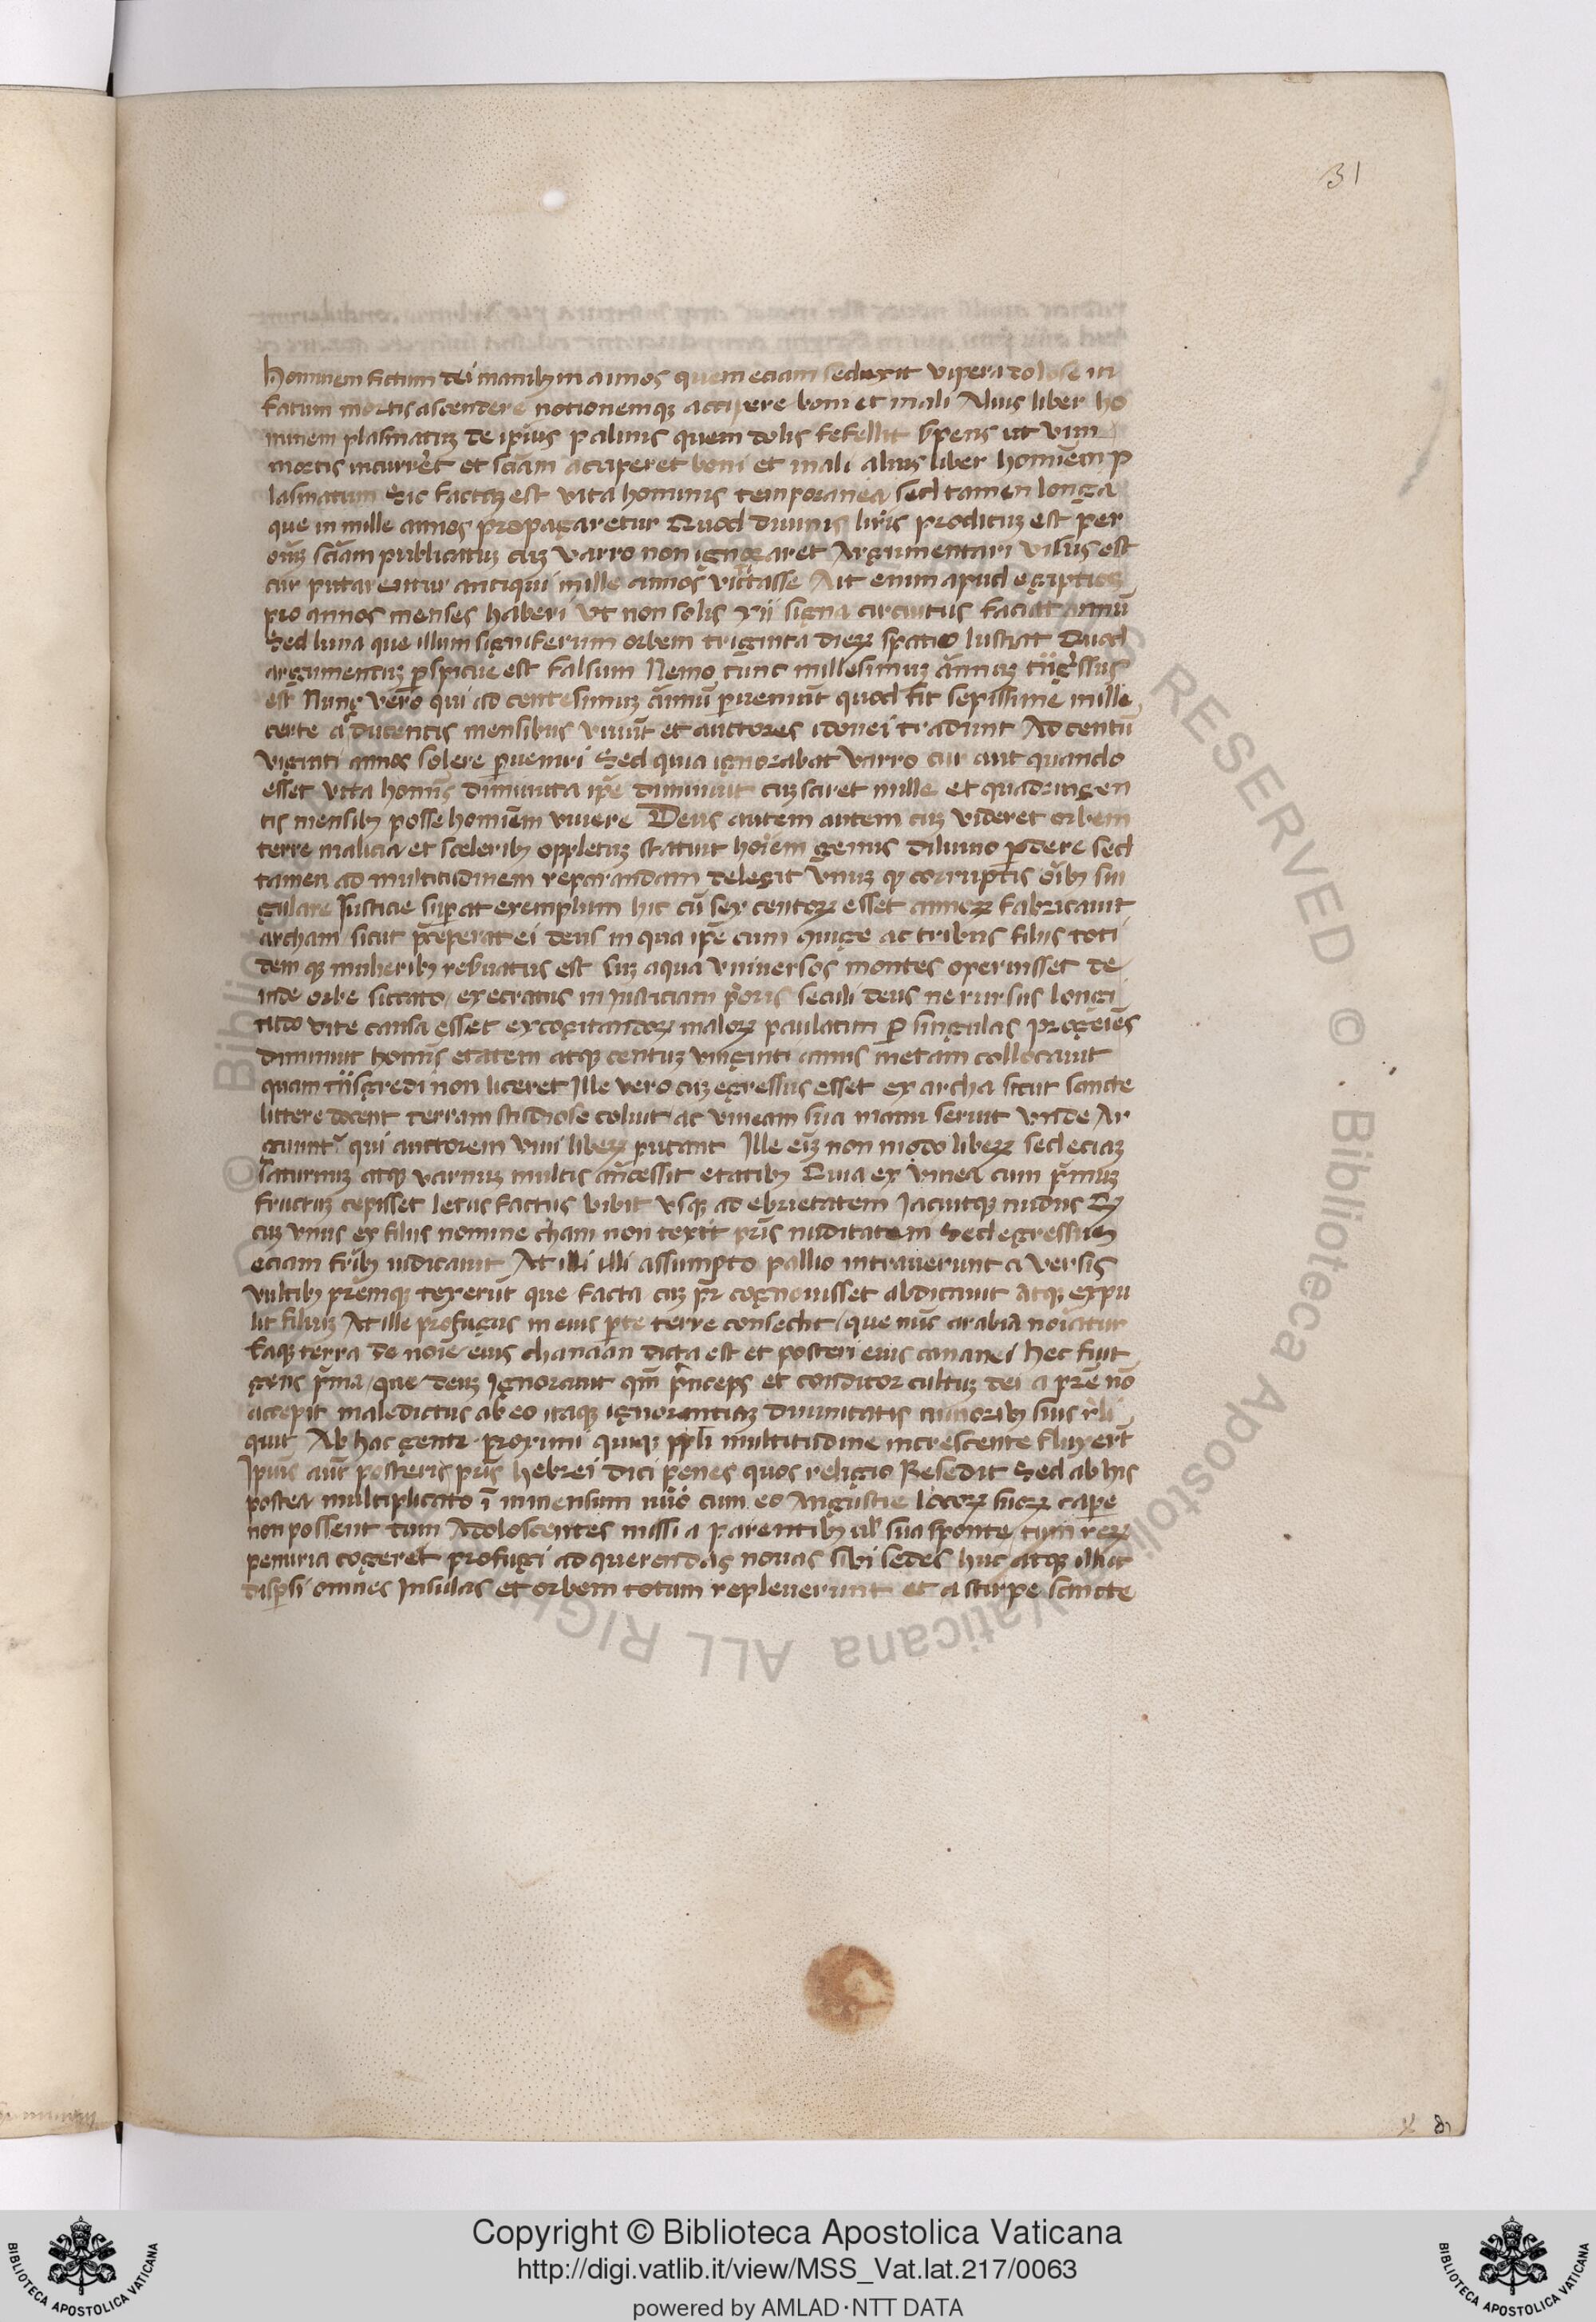 31
hominem fictum dei manibus in annos quem eciam seduxit vipera dolose in
fatum mortis ascendere notionemque accipere boni et mali Alius liber ho
minem plasmatum de ipsius palmis quem dolis fefellit serpens ut vim
mortis incurreret et sciam acciperet boni et mali alius liber hominem p
lasmatum Sic factum est vita hominis temporanea sed tamen longa
que in mille annos propagaretur Quod diuinis libris proditum est per
omnium sciam publicatum cum varro non ignoraret Argumentari visus est
cur putarentur antiqui mille annos victitasse Ait enim apud egiptios
pro annos menses haberi Ut non solis xii signa circuitus faciat annum
Sed luna que illum signiferum orbem triginta dierum spatio lustrat Quod
argumentum perspicue est falsum Nemo tunc millesimum annum transgressus
est Nunc vero qui ad centesimum annum perveniunt quod fit sepissime mille
certe a ducentis mensibus vivunt et auctores idonei tradunt Ad centum
viginti annos solere perveniri Sed quia ignorabat varro cur aut quando
esset vita hominis diminuta ipse diminuit cum sciret mille et quadringen
tis mensibus posse hominem vivere Deus autem autem cum videret orbem
terre malicia et sceleribus oppletum statuit hominem genus diluuio perdere sed
tamen ad multitudinem reparandam delegit vnum quod corruptis omnibus sin
gulare Iusticie superat exemplum hic cum sex centorum esset annorum fabricauit
archam sicut preceperat ei deus in qua ipse cum coniuge ac tribus filiis toti
dem que mulieribus reseruatus est Cum aqua vniuersos montes operuisset de
inde orbe siccato execratus iniusticiam prioris seculi deus ne rursus longi
tudo vite causa esset excogitandorum malorum paulatim per singulas progenies
diminuit hominis etatem atque centum vinginti annis metam collocauit
quam transgredi non liceret Ille vero cum egressus esset ex archa sicut sancte
littere docent terram studiose coluit ac vineam sua manu seruit Vnde Ar
guuntur qui auctorem vini liberum putant Ille enim non modo liberum sed eciam
saturnum atque varnum multis antecessit etatibus Quia ex vinea cum primum
fructum cepisset letus factus bibit vsque ad ebrietatem Iacuitque nudus Quod
cum vnus ex filiis nomine cham non texit patris nuditatem Sed egressus
eciam fratribus indicauit At illi illi assumpto pallio intrauerunt a versis
vultibus patremque texerunt que facta cum pater cognouisset abdicauit atque expu
lit filium At ille profugus in eius parte terre consedit que nunc arabia nominatur
Eaque terra de nomine eius chanaan dicta est et posteri eius cananei hec fuit
gens prima que deum Ignorauit quoniam princeps et conditor cultum dei a patre non
accepit maledictus ab eo itaque ignorantiam diuinitatis minoribus suis reli
quit Ab hac gente proximi quique populi multitudine increscente fluxerunt
Ipsius autem posteris patris hebrei dici penes quos religio Resedit Sed ab his
postea multiplicato in inmensum numero cum eos Angustie locorum suorum capere
non possent tum Adoloscentes missi a parentibus uel sua sponte cum rerum
penuria cogeret profugi ad querendas nouas sibi sedes huc atque illuc
dispersi omnes Insulas et orbem totum repleuerunt et a stirpe sancte
© Biblioteca Apostolica Vaticana ALL RIGHTS RESERVED
Copyright © Biblioteca Apostolica Vaticana
http://digi.vatlib.it/view/MSS_Vat.lat.217/0063
powered by AMLAD·NTT DATA
BIBLIOTECA APOSTOLICA VATICANA
BIBLIOTECA APOSTOLICA VATICANA